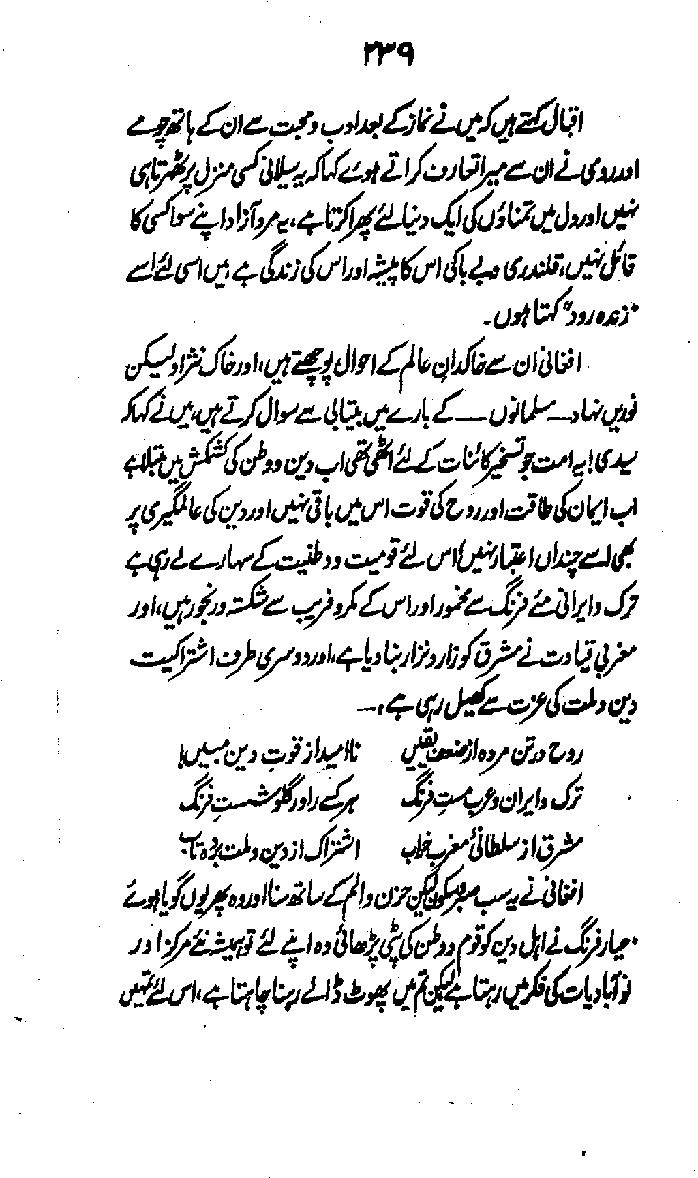 ۲۳۹
اقبال کہتے ہیں کہ میں نے نماز کے بعد ادب و محبت سے ان کے ہاتھ چومے
اور رومی نے ان سے میرا تعارف کراتے ہوے کہا کہ یہ سیلانی کسی منزل پر ٹھہرتا ہی
نہیں اور دل میں تمناؤں کی ایک دنیا لئے پھرا کرتا ہے، یہ مرد آزاد اپنے سوا کسی کا
قائل نہیں، قلندری و بے باکی اس کا پیشہ اور اس کی زندگی ہے، میں اسی لئے اسے
"زندہ رود" کہتا ہوں۔
افغانی ان سے خاکدانِ عالم کے احوال پوچھتے ہیں، اور خاک نژاد لیکن
نوریں نہاد — مسلمانوں — کے بارے میں بیتابی سے سوال کرتے ہیں، میں نے کہا کہ
سیدی! یہ امت جو تسخیر کائنات کے لئے اٹھی تھی اب دین و وطن کی کشمکش میں مبتلا ہے
اب ایمان کی طاقت اور روح کی قوت اس میں باقی نہیں اور دین کی عالمگیری پر
بھی اسے چنداں اعتبار نہیں! اس لئے قومیت و وطنیت کے سہارے لے رہی ہے
ترک و ایرانی مئے فرنگ سے مخمور اور اس کے مکر و فریب سے شکستہ و رنجور ہیں، اور
مغربی قیادت نے مشرق کو زار و نزار بنا دیا ہے، اور دوسری طرف اشتراکیت
دین و ملت کی عزت سے کھیل رہی ہے،—
روح در تن مردہ از ضعف یقیں نا امید از قوتِ دین مبیں!
ترک و ایران و عرب مستِ فرنگ ہر کسے را در گلو شستِ فرنگ
مشرق از سلطانیٔ مغرب خراب اشتراک از دین و ملت بردہ تاب
افغانی نے یہ سب صبر و سکون لیکن حزن و الم کے ساتھ سنا اور وہ پھر یوں گویا ہوئے
"عیار فرنگ نے اہل دین کو قوم و وطن کی پٹی پڑھائی وہ اپنے لئے تو ہمیشہ نئے مرکز اور
نو آبادیات کی فکر میں رہتا ہے لیکن تم میں پھوٹ ڈالے رہنا چاہتا ہے، اس لئے تمہیں